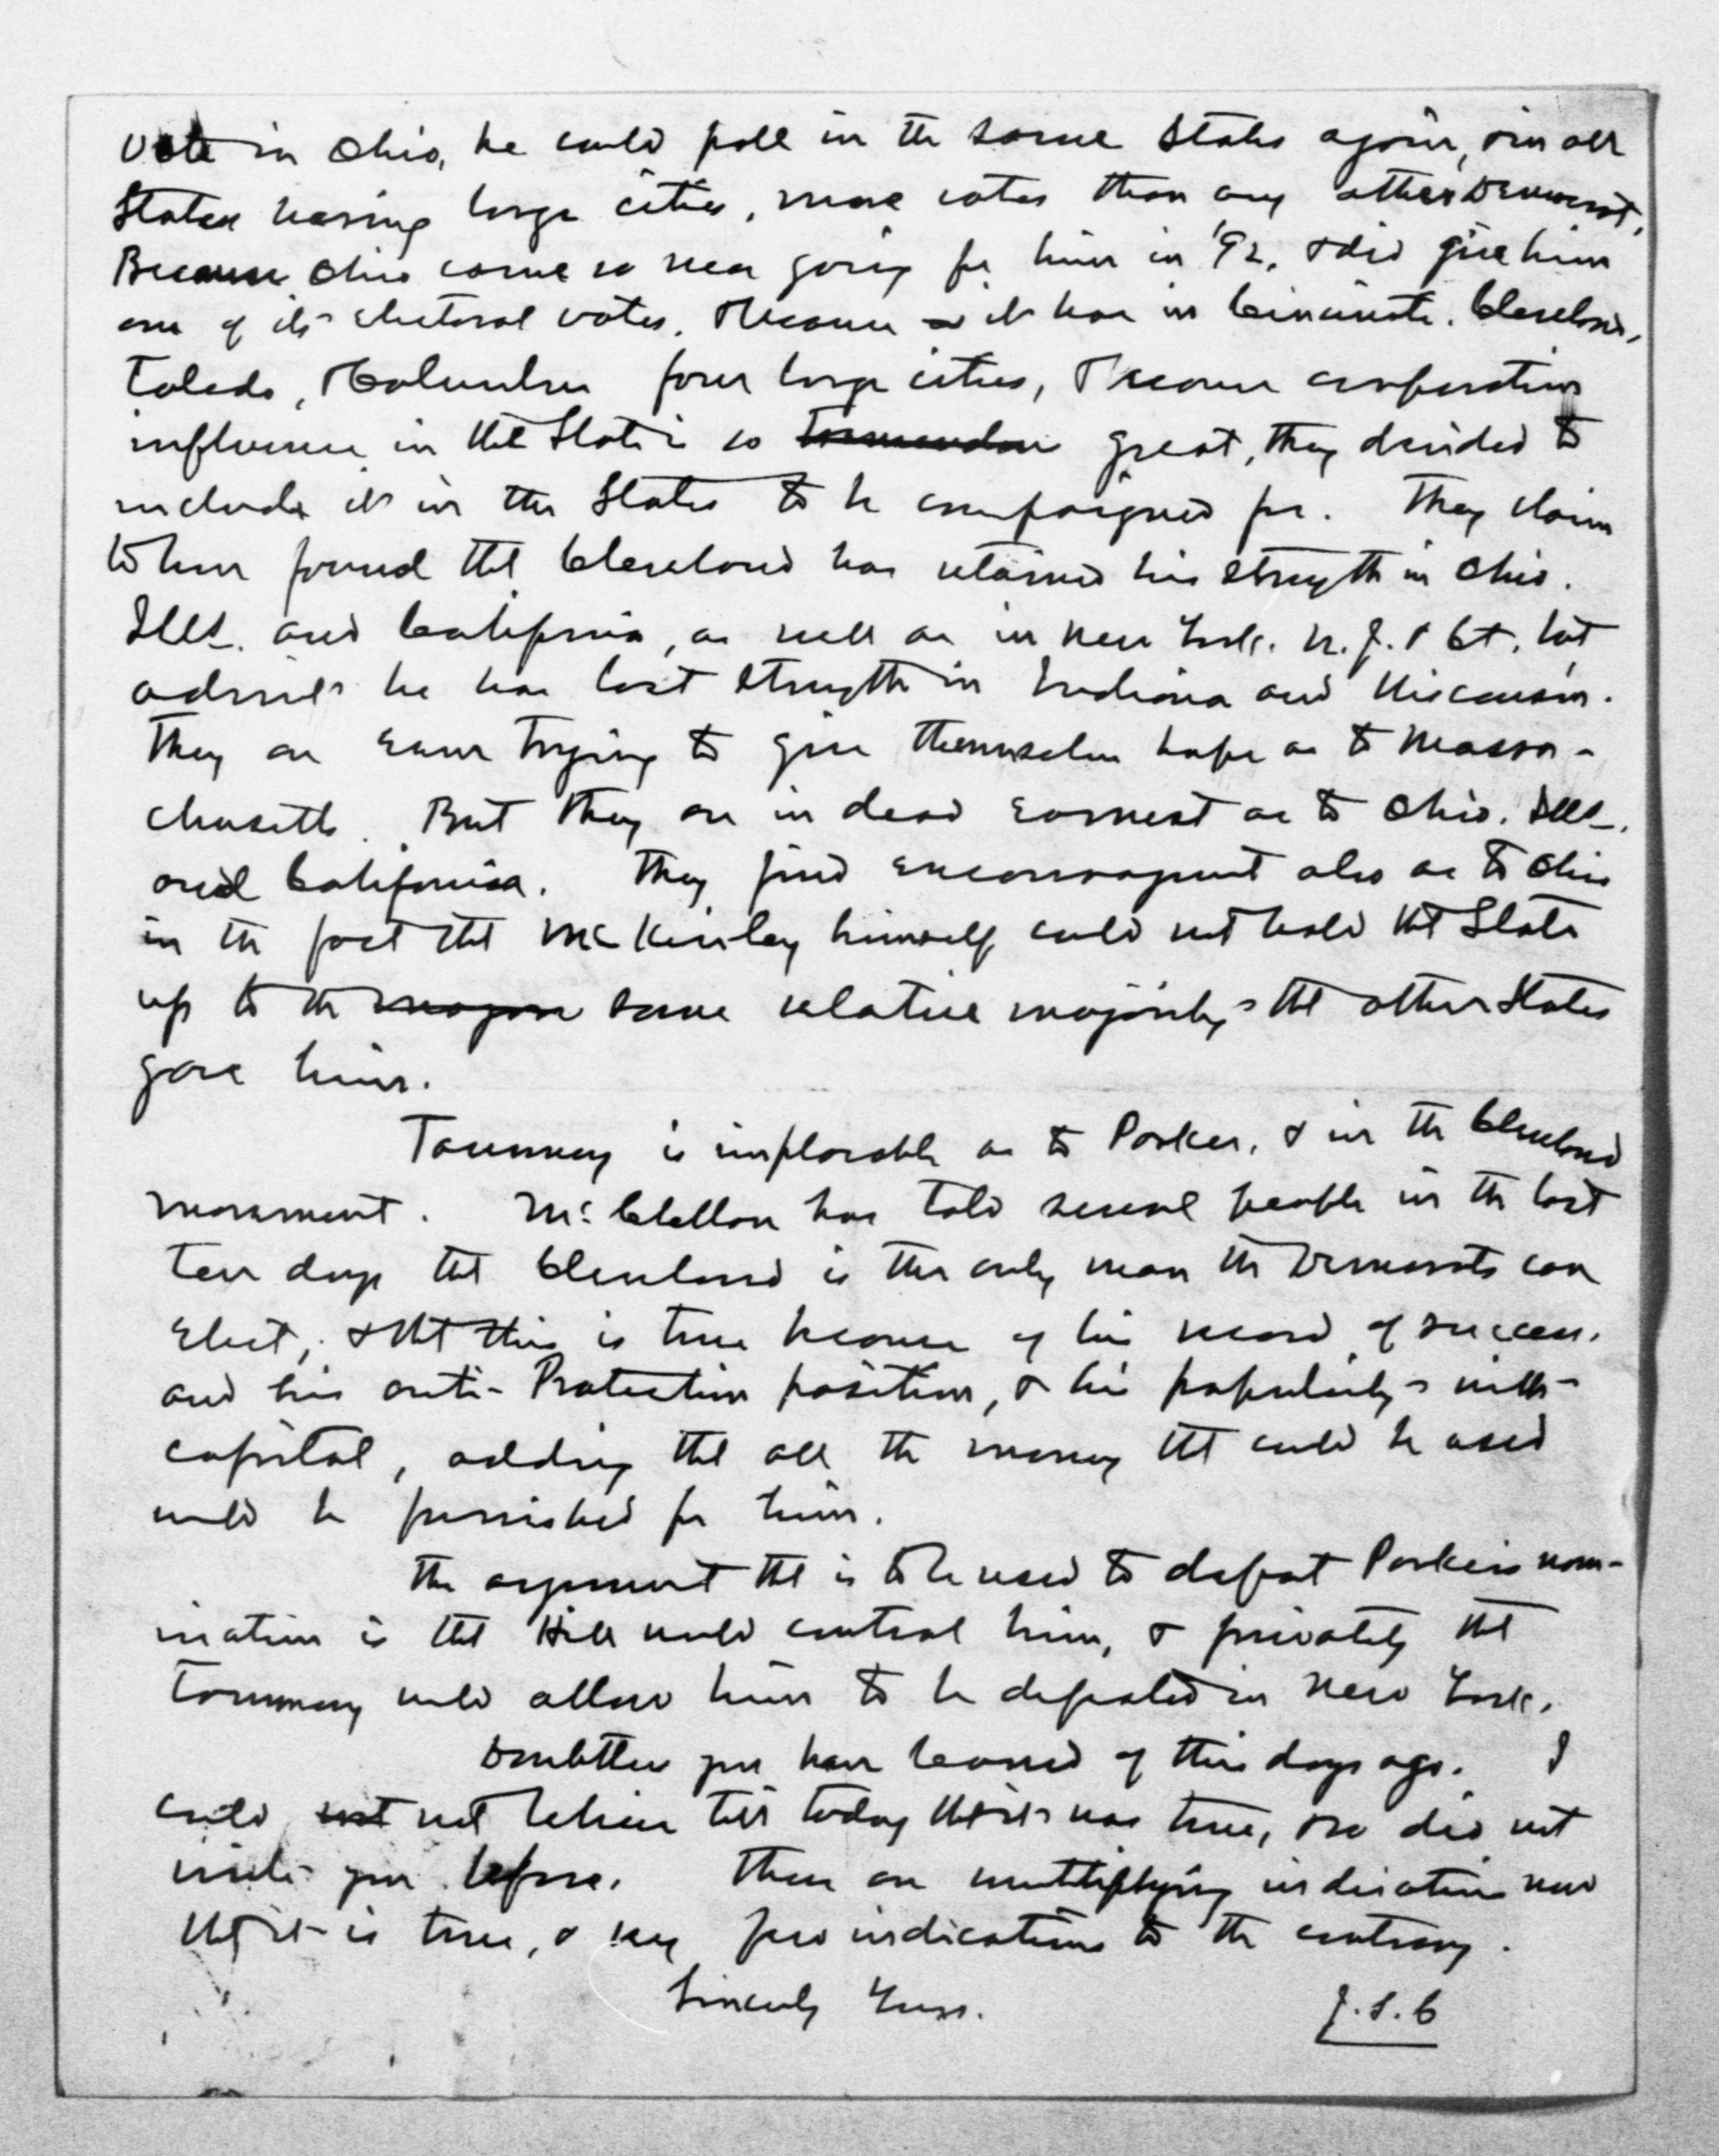 vote in Ohio, he could poll in the same States again, & in all
States having large cities, more votes than any other Democrat.
Because Ohio came so near going for him in '92, & did give him
one of its electoral votes, & because it has in Cincinnati, Cleveland,
Toledo, & Columbus four large cities, & because corporation
influence in the State is so tremendous great, they decided to
include it in the States to be campaigned for. They claim
to have found that Cleveland has retained his strength in Ohio,
Ills. and California, as well as in New York, N.J. & Ct., but
admit he has lost strength in Indiana and Wisconsin.
They are even trying to give themselves hope as to Massa-
chusetts. But they are in dead earnest as to Ohio, Ills.
and California. They find encouragement also as to Ohio
in the fact that McKinley himself could not hold that State
up to the same relative majority the other States
gave him.
Tammany is implacable as to Parker, & in the Cleveland
movement. McClellan has told several people in the last
ten days that Cleveland is the only man the Democrats can
elect, & that this is true because of his record of success,
and his anti-Protection position, & his popularity with
capital, adding that all the money that could be used
would be furnished for him.
The argument that is to be used to defeat Parker's nom-
ination is that Hill would control him, & privately that
Tammany would allow him to be defeated in New York.
Doubtless you have learned of this days ago. I
could not not believe till today that it was true, & so did not
write you before. There are multiplying indications now
that it is true, & very few indications to the contrary.
Sincerely Yours.
J.S.C